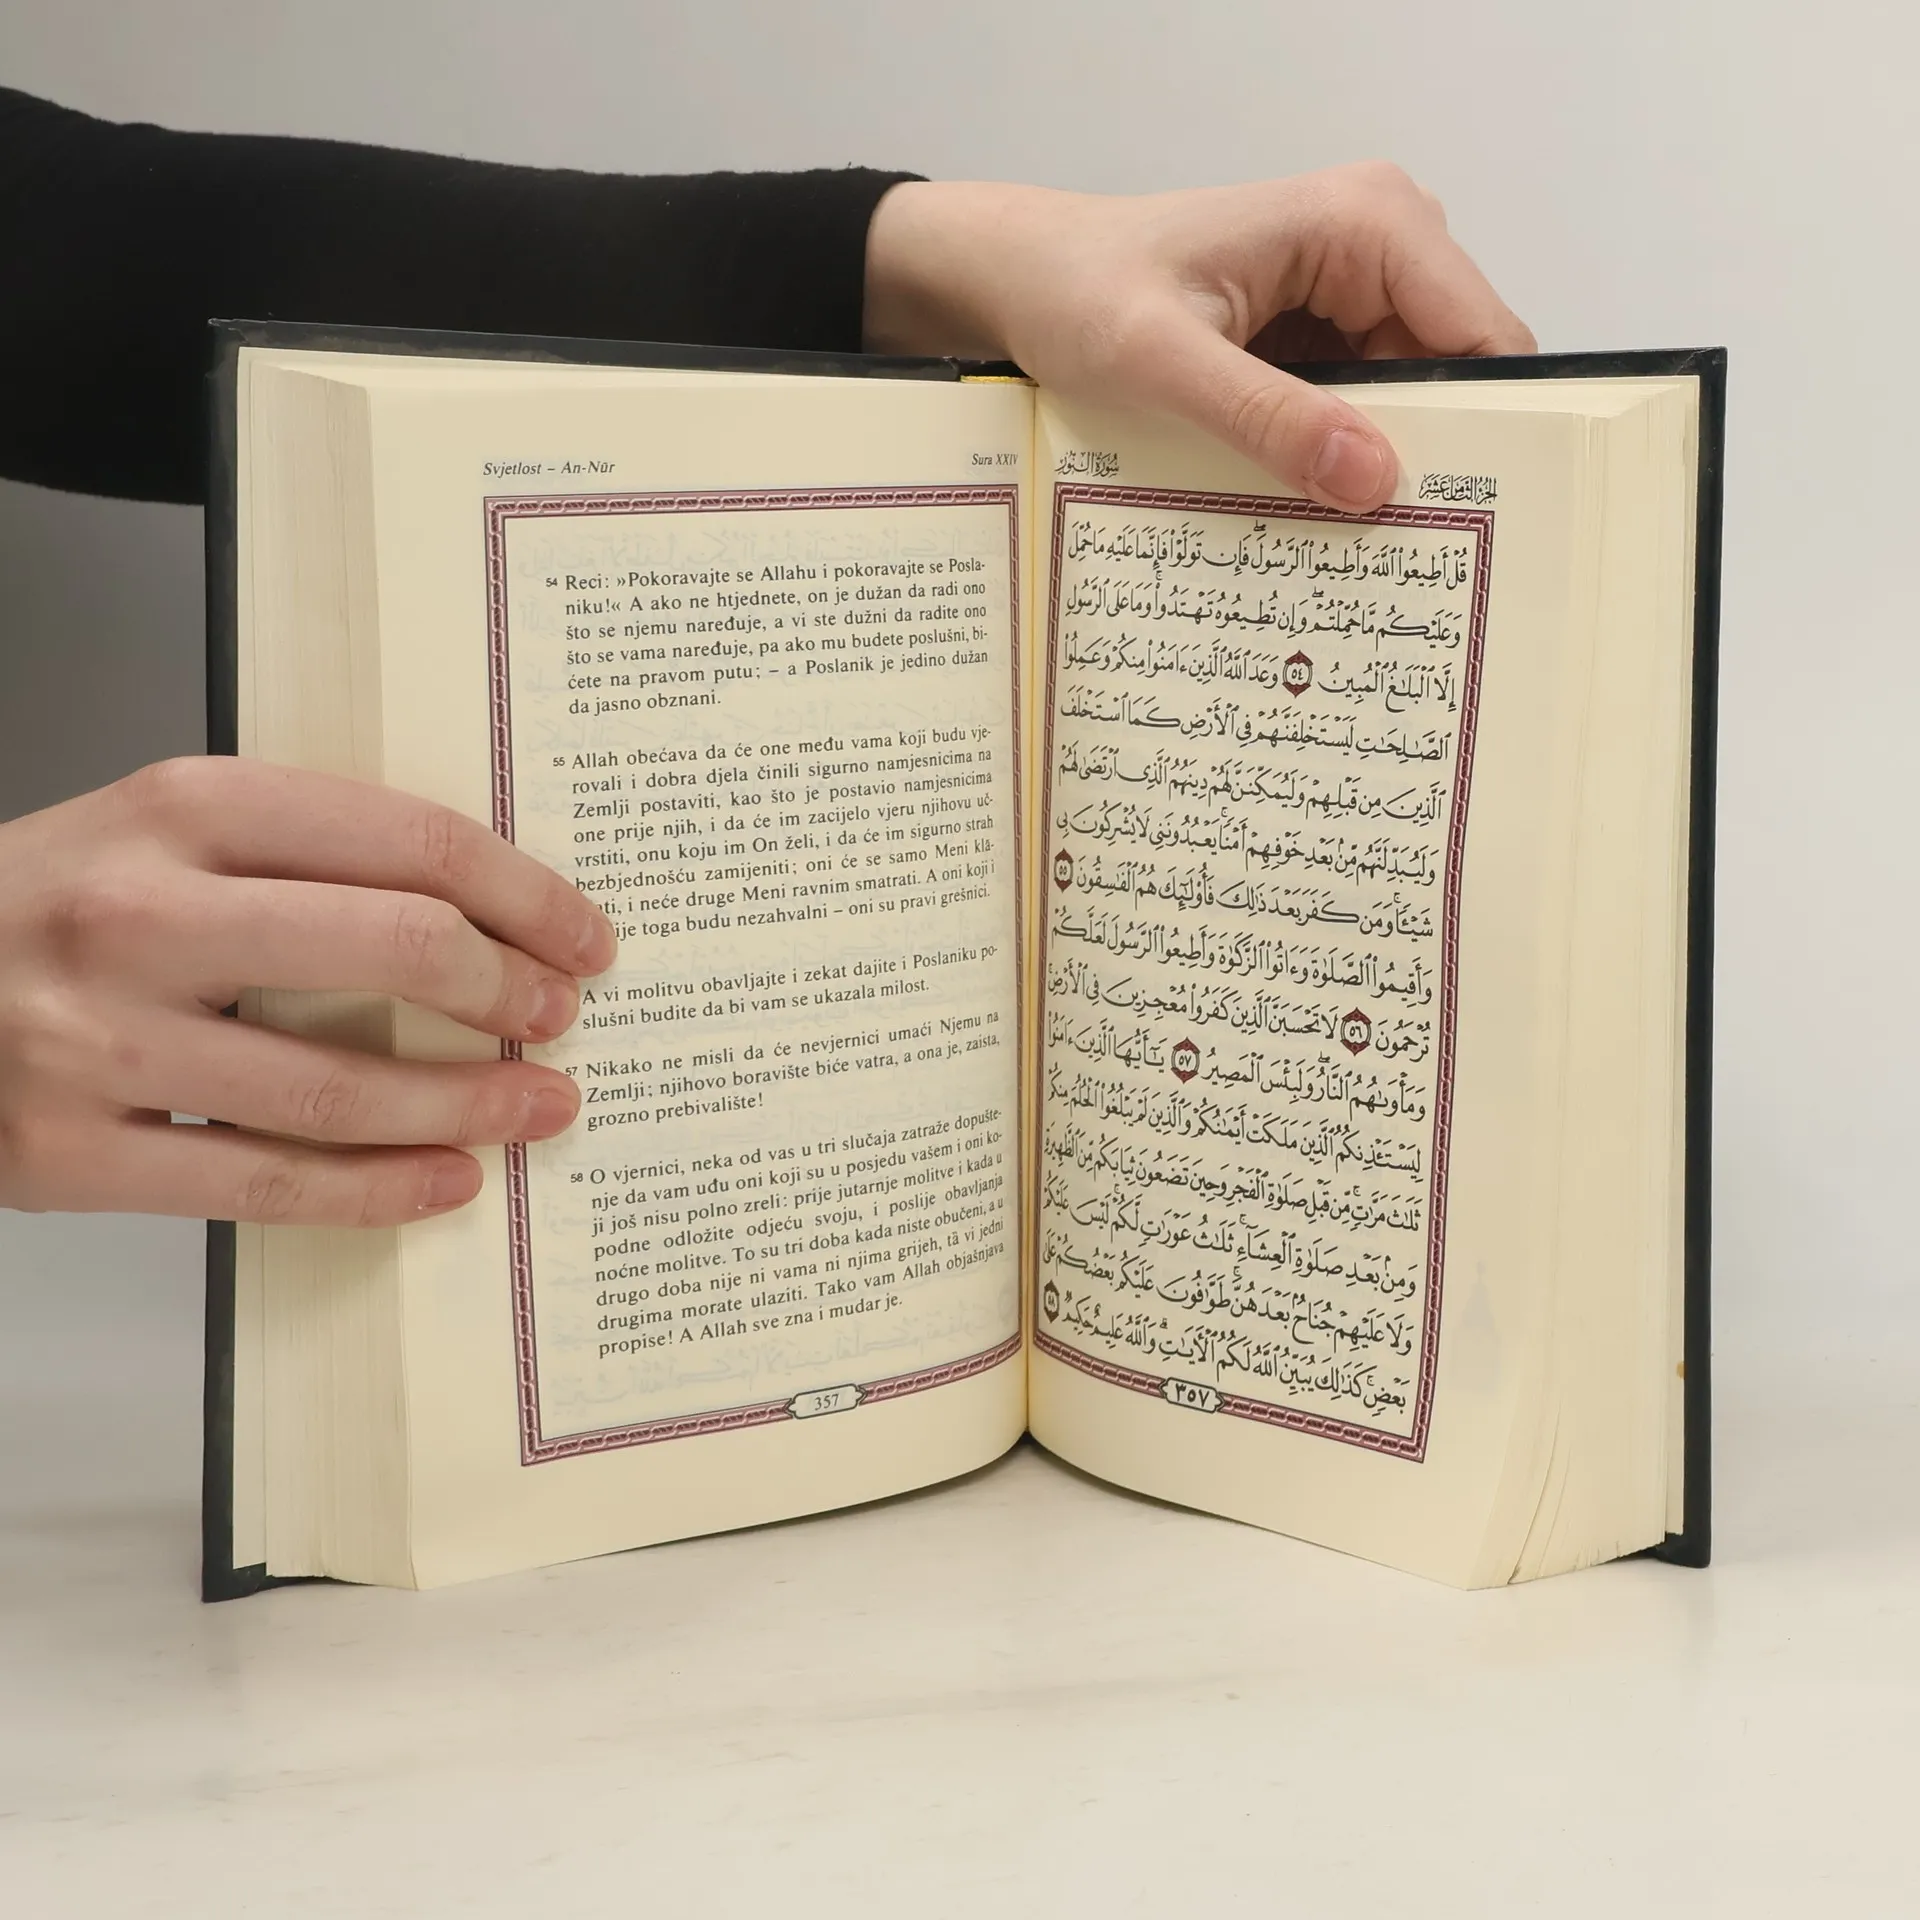 Svjetlost – An-Nūr
Sura XXIV
54 Reci: »Pokoravajte se Allahu i pokoravajte se Posla-
niku!« A ako ne htjednete, on je dužan da radi ono
što se njemu naređuje, a vi ste dužni da radite ono
što se vama naređuje, pa ako mu budete poslušni, bi-
ćete na pravom putu; – a Poslanik je jedino dužan
da jasno obznani.
55 Allah obećava da će one među vama koji budu vje-
rovali i dobra djela činili sigurno namjesnicima na
Zemlji postaviti, kao što je postavio namjesnicima
one prije njih, i da će im zacijelo vjeru njihovu uč-
vrstiti, onu koju im On želi, i da će im sigurno strah
bezbjednošću zamijeniti; oni će se samo Meni kla-
ati, i neće druge Meni ravnim smatrati. A oni koji i
ije toga budu nezahvalni – oni su pravi grešnici.
A vi molitvu obavljajte i zekat dajite i Poslaniku po-
slušni budite da bi vam se ukazala milost.
57 Nikako ne misli da će nevjernici umaći Njemu na
Zemlji; njihovo boravište biće vatra, a ona je, zaista,
grozno prebivalište!
58 O vjernici, neka od vas u tri slučaja zatraže dopušte-
nje da vam uđu oni koji su u posjedu vašem i oni ko-
ji još nisu polno zreli: prije jutarnje molitve i kada u
podne odložite odjeću svoju, i poslije obavljanja
noćne molitve. To su tri doba kada niste obučeni, a u
drugo doba nije ni vama ni njima grijeh, tā vi jedni
drugima morate ulaziti. Tako vam Allah objašnjava
propise! A Allah sve zna i mudar je.
357
سُورَةُ النُّورِ
الجُزْءُ الثَّامِنَ عَشَرَ
قُلْ أَطِيعُوا۟ ٱللَّهَ وَأَطِيعُوا۟ ٱلرَّسُولَ ۖ فَإِن تَوَلَّوْا۟ فَإِنَّمَا عَلَيْهِ مَا حُمِّلَ
وَعَلَيْكُم مَّا حُمِّلْتُمْ ۖ وَإِن تُطِيعُوهُ تَهْتَدُوا۟ ۚ وَمَا عَلَى ٱلرَّسُولِ
إِلَّا ٱلْبَلَـٰغُ ٱلْمُبِينُ ٥٤ وَعَدَ ٱللَّهُ ٱلَّذِينَ ءَامَنُوا۟ مِنكُمْ وَعَمِلُوا۟
ٱلصَّـٰلِحَـٰتِ لَيَسْتَخْلِفَنَّهُمْ فِى ٱلْأَرْضِ كَمَا ٱسْتَخْلَفَ
ٱلَّذِينَ مِن قَبْلِهِمْ وَلَيُمَكِّنَنَّ لَهُمْ دِينَهُمُ ٱلَّذِى ٱرْتَضَىٰ لَهُمْ
وَلَيُبَدِّلَنَّهُم مِّنۢ بَعْدِ خَوْفِهِمْ أَمْنًا ۚ يَعْبُدُونَنِى لَا يُشْرِكُونَ بِى
شَيْـًٔا ۚ وَمَن كَفَرَ بَعْدَ ذَٰلِكَ فَأُو۟لَـٰٓئِكَ هُمُ ٱلْفَـٰسِقُونَ ٥٥
وَأَقِيمُوا۟ ٱلصَّلَوٰةَ وَءَاتُوا۟ ٱلزَّكَوٰةَ وَأَطِيعُوا۟ ٱلرَّسُولَ لَعَلَّكُمْ
تُرْحَمُونَ ٥٦ لَا تَحْسَبَنَّ ٱلَّذِينَ كَفَرُوا۟ مُعْجِزِينَ فِى ٱلْأَرْضِ ۚ
وَمَأْوَىٰهُمُ ٱلنَّارُ ۖ وَلَبِئْسَ ٱلْمَصِيرُ ٥٧ يَـٰٓأَيُّهَا ٱلَّذِينَ ءَامَنُوا۟
لِيَسْتَـْٔذِنكُمُ ٱلَّذِينَ مَلَكَتْ أَيْمَـٰنُكُمْ وَٱلَّذِينَ لَمْ يَبْلُغُوا۟ ٱلْحُلُمَ مِنكُمْ
ثَلَـٰثَ مَرَّٰتٍ ۚ مِّن قَبْلِ صَلَوٰةِ ٱلْفَجْرِ وَحِينَ تَضَعُونَ ثِيَابَكُم مِّنَ ٱلظَّهِيرَةِ
وَمِنۢ بَعْدِ صَلَوٰةِ ٱلْعِشَآءِ ۚ ثَلَـٰثُ عَوْرَٰتٍ لَّكُمْ ۚ لَيْسَ عَلَيْكُمْ
وَلَا عَلَيْهِمْ جُنَاحٌۢ بَعْدَهُنَّ ۚ طَوَّٰفُونَ عَلَيْكُم بَعْضُكُمْ عَلَىٰ
بَعْضٍ ۚ كَذَٰلِكَ يُبَيِّنُ ٱللَّهُ لَكُمُ ٱلْـَٔايَـٰتِ ۗ وَٱللَّهُ عَلِيمٌ حَكِيمٌ ٥٨
٣٥٧